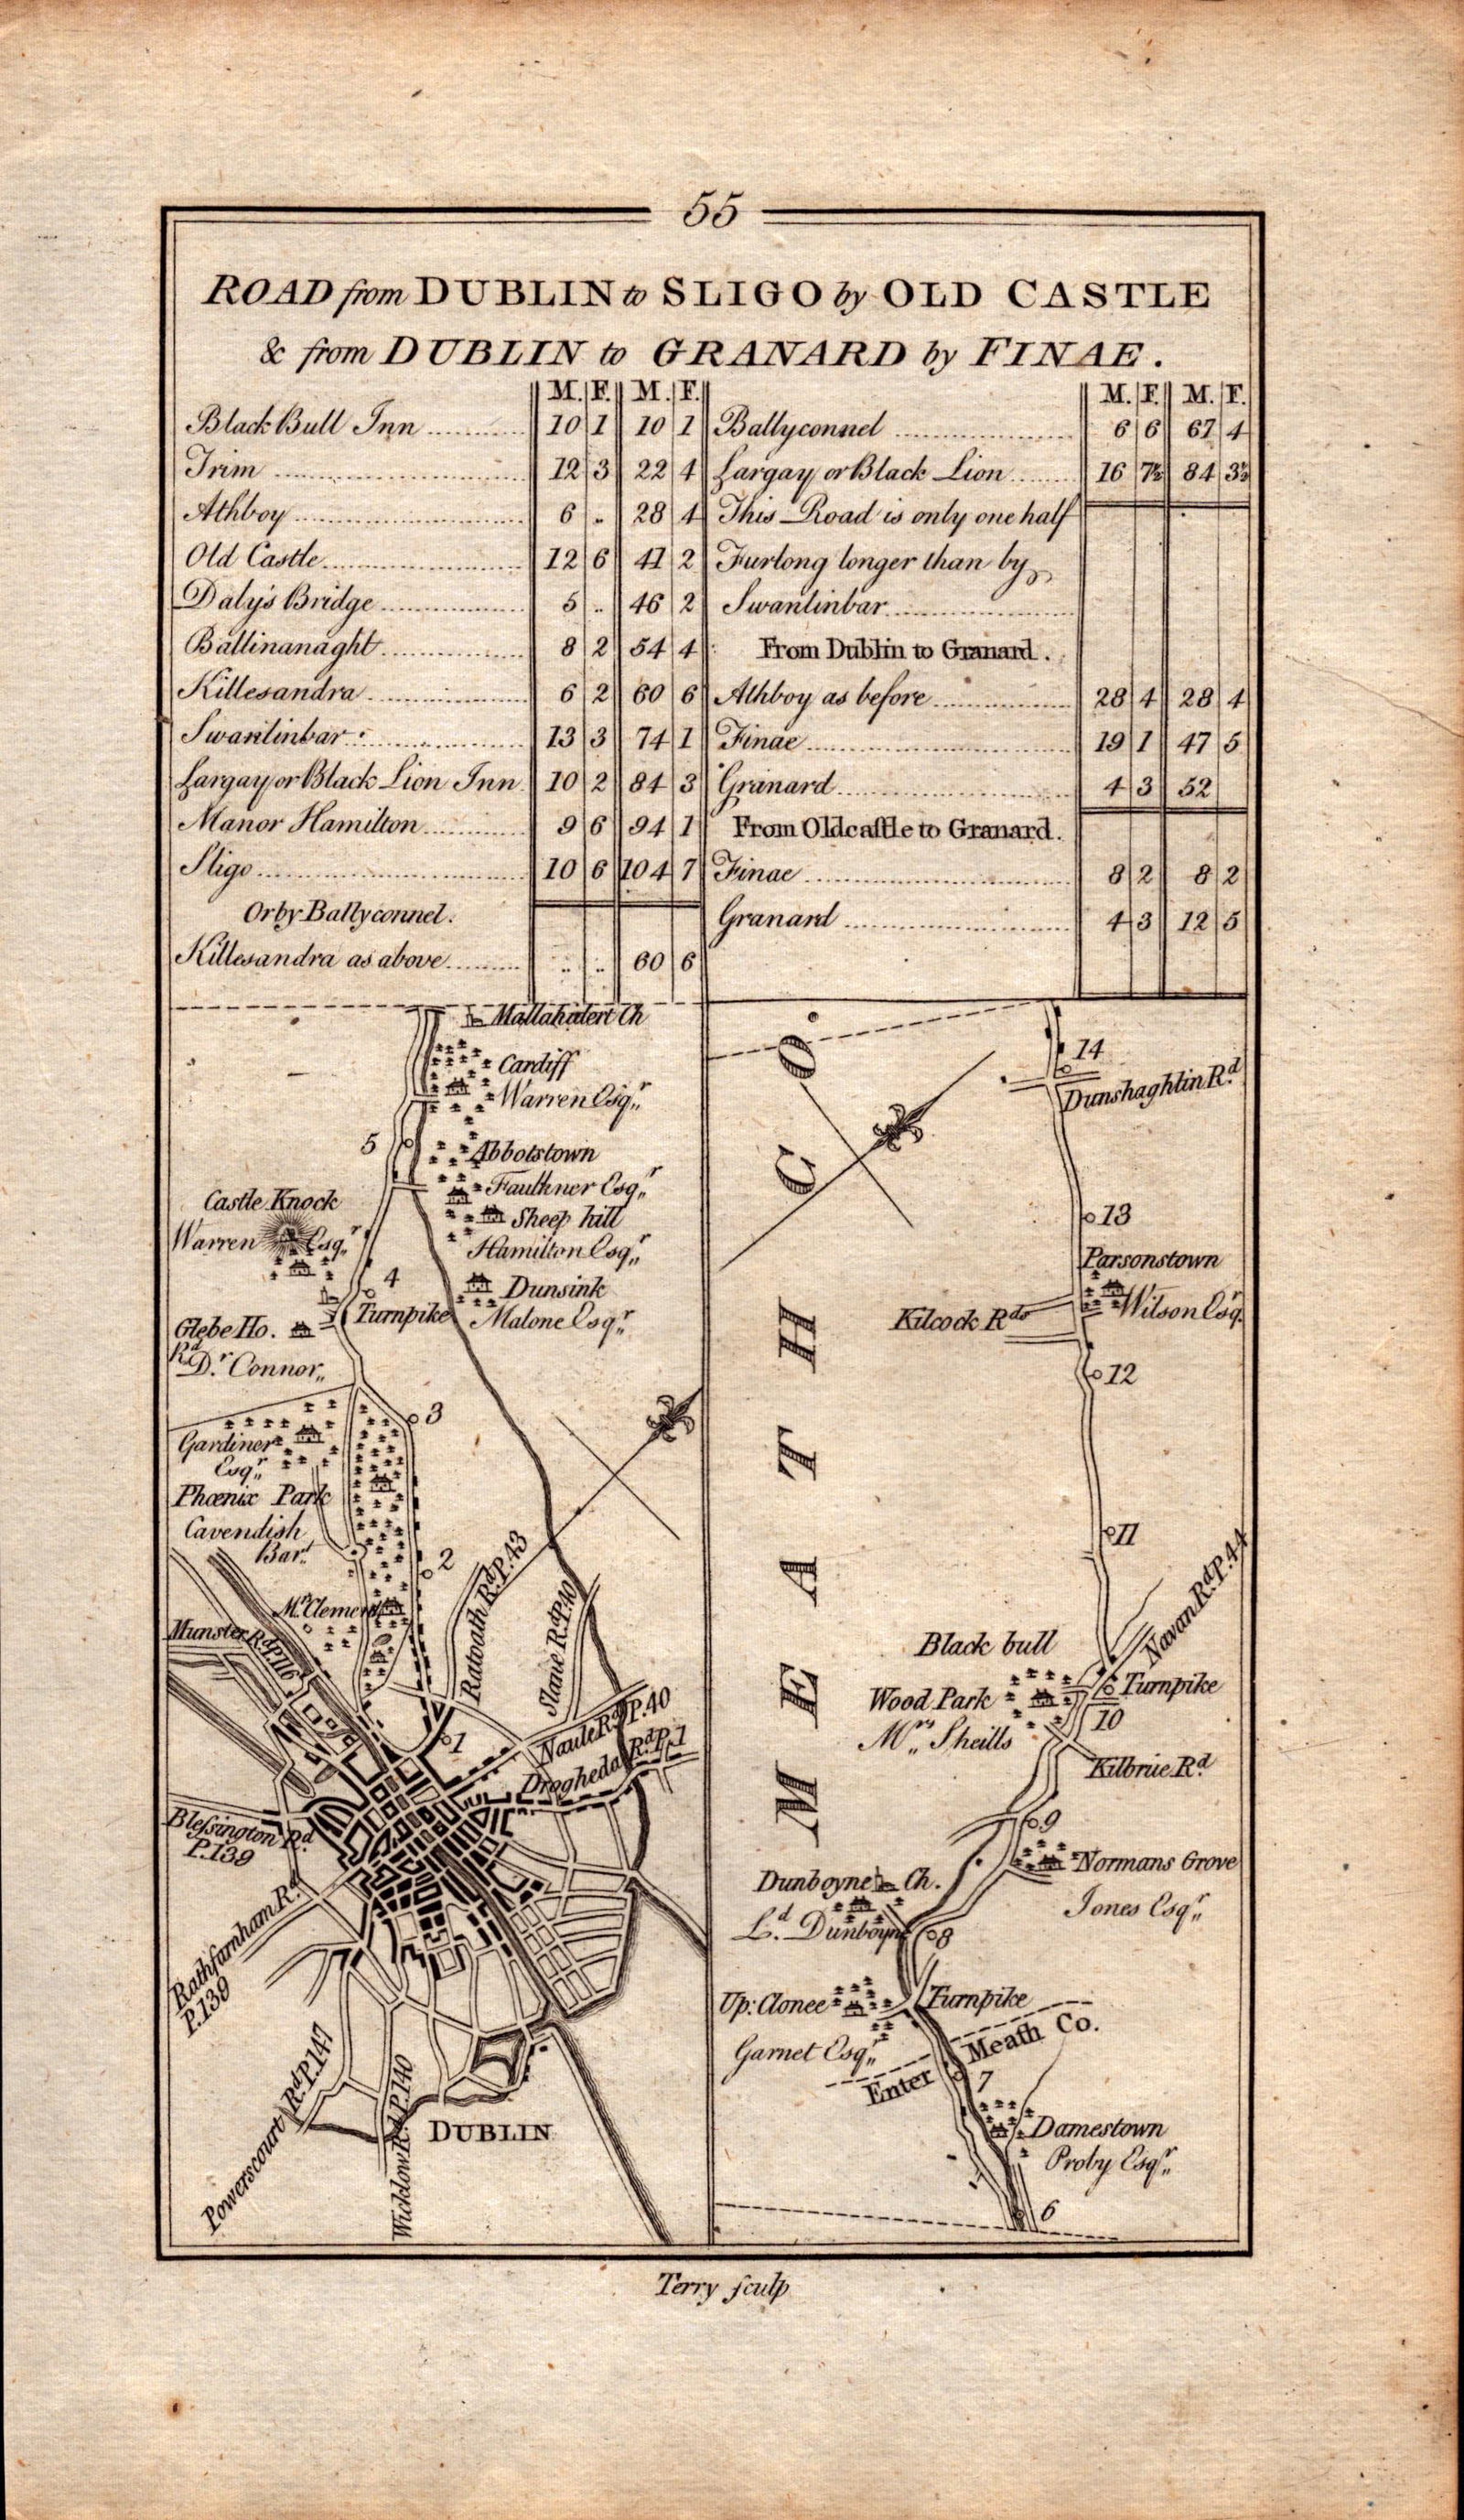 55
ROAD from DUBLIN to SLIGO by OLD CASTLE
& from DUBLIN to GRANARD by FINAE.
M. F. M. F.
Black Bull Inn 10 1 10 1
Trim 12 3 22 4
Athboy 6 .. 28 4
Old Castle 12 6 41 2
Daly's Bridge 5 .. 46 2
Ballinanaght 8 2 54 4
Killesandra 6 2 60 6
Swanlinbar 13 3 74 1
Largay or Black Lion Inn 10 2 84 3
Manor Hamilton 9 6 94 1
Sligo 10 6 104 7
Or by Ballyconnel.
Killesandra as above .. .. 60 6
M. F. M. F.
Ballyconnel 6 6 67 4
Largay or Black Lion 16 7½ 84 3½
This Road is only one half
Furlong longer than by
Swanlinbar
From Dublin to Granard.
Athboy as before 28 4 28 4
Finae 19 1 47 5
Granard 4 3 52
From Oldcastle to Granard.
Finae 8 2 8 2
Granard 4 3 12 5
Mallahidert Ch
Cardiff
Warren Esqr.
5
Abbotstown
Faulkner Esqr.
Castle Knock
Sheep hill
Warren Esqr.
Hamilton Esqr.
4
Dunsink
Turnpike
Malone Esqr.
Glebe Ho.
Rd. Dr. Connor
3
Gardiner
Esqr.
Phœnix Park
Cavendish
Bart.
2
Mr. Clements
Ratoath Rd. P.43
Slane Rd. P.40
Munster Rd. P.116
1
Naule Rd. P.40
Drogheda Rd. P.1
Blessington Rd.
P.139
Rathfarnham Rd.
P.139
Powerscourt Rd. P.147
Wicklow Rd. P.140
DUBLIN
CO.
MEATH
14
Dunshaghlin Rd.
13
Parsonstown
Wilson Esqr.
Kilcock Rds
12
11
Navan Rd. P.44
Black bull
Wood Park
Turnpike
Mrs. Sheills
10
Kilbrue Rd.
9
Normans Grove
Jones Esqr.
Dunboyne Ch.
Ld. Dunboyne
8
Up: Clonee
Turnpike
Garnet Esqr.
Enter Meath Co.
7
Damestown
Proby Esqr.
6
Terry sculp